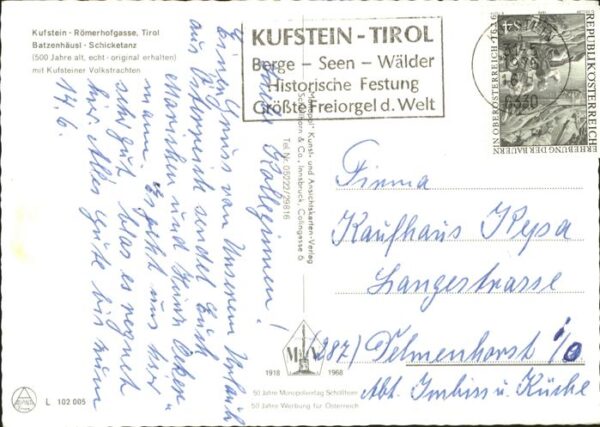 Kufstein - Römerhofgasse, Tirol
Batzenhäusl - Schicketanz
(500 Jahre alt, echt - original erhalten)
mit Kufsteiner Volkstrachten
14.6.
Liebe Kolleginnen!
Einen Gruss von Unserem Urlaub
aus Österreich sendet Euch
Mariechen und
mann. Es geht uns hier
sehr gut, blos es regnet
hir. Alles gute bis nun
KUFSTEIN - TIROL
Berge - Seen - Wälder
Historische Festung
Größte Freiorgel d. Welt
6330
REPUBLIK ÖSTERREICH
ERHEBUNG DER BAUERN
IN OBERÖSTERREICH
Kunst- und Ansichtskarten-Verlag
Schöllhorn & Co., Innsbruck, Colingasse 6
Tel. Nr. 05222/29816
Firma
Kaufhaus Kepa
Langestrasse
(287) Delmenhorst i/O
Abt. Imbiss u. Küche
1918 1968
50 Jahre Monopolverlag Schöllhorn
50 Jahre Werbung für Österreich
L 102.005